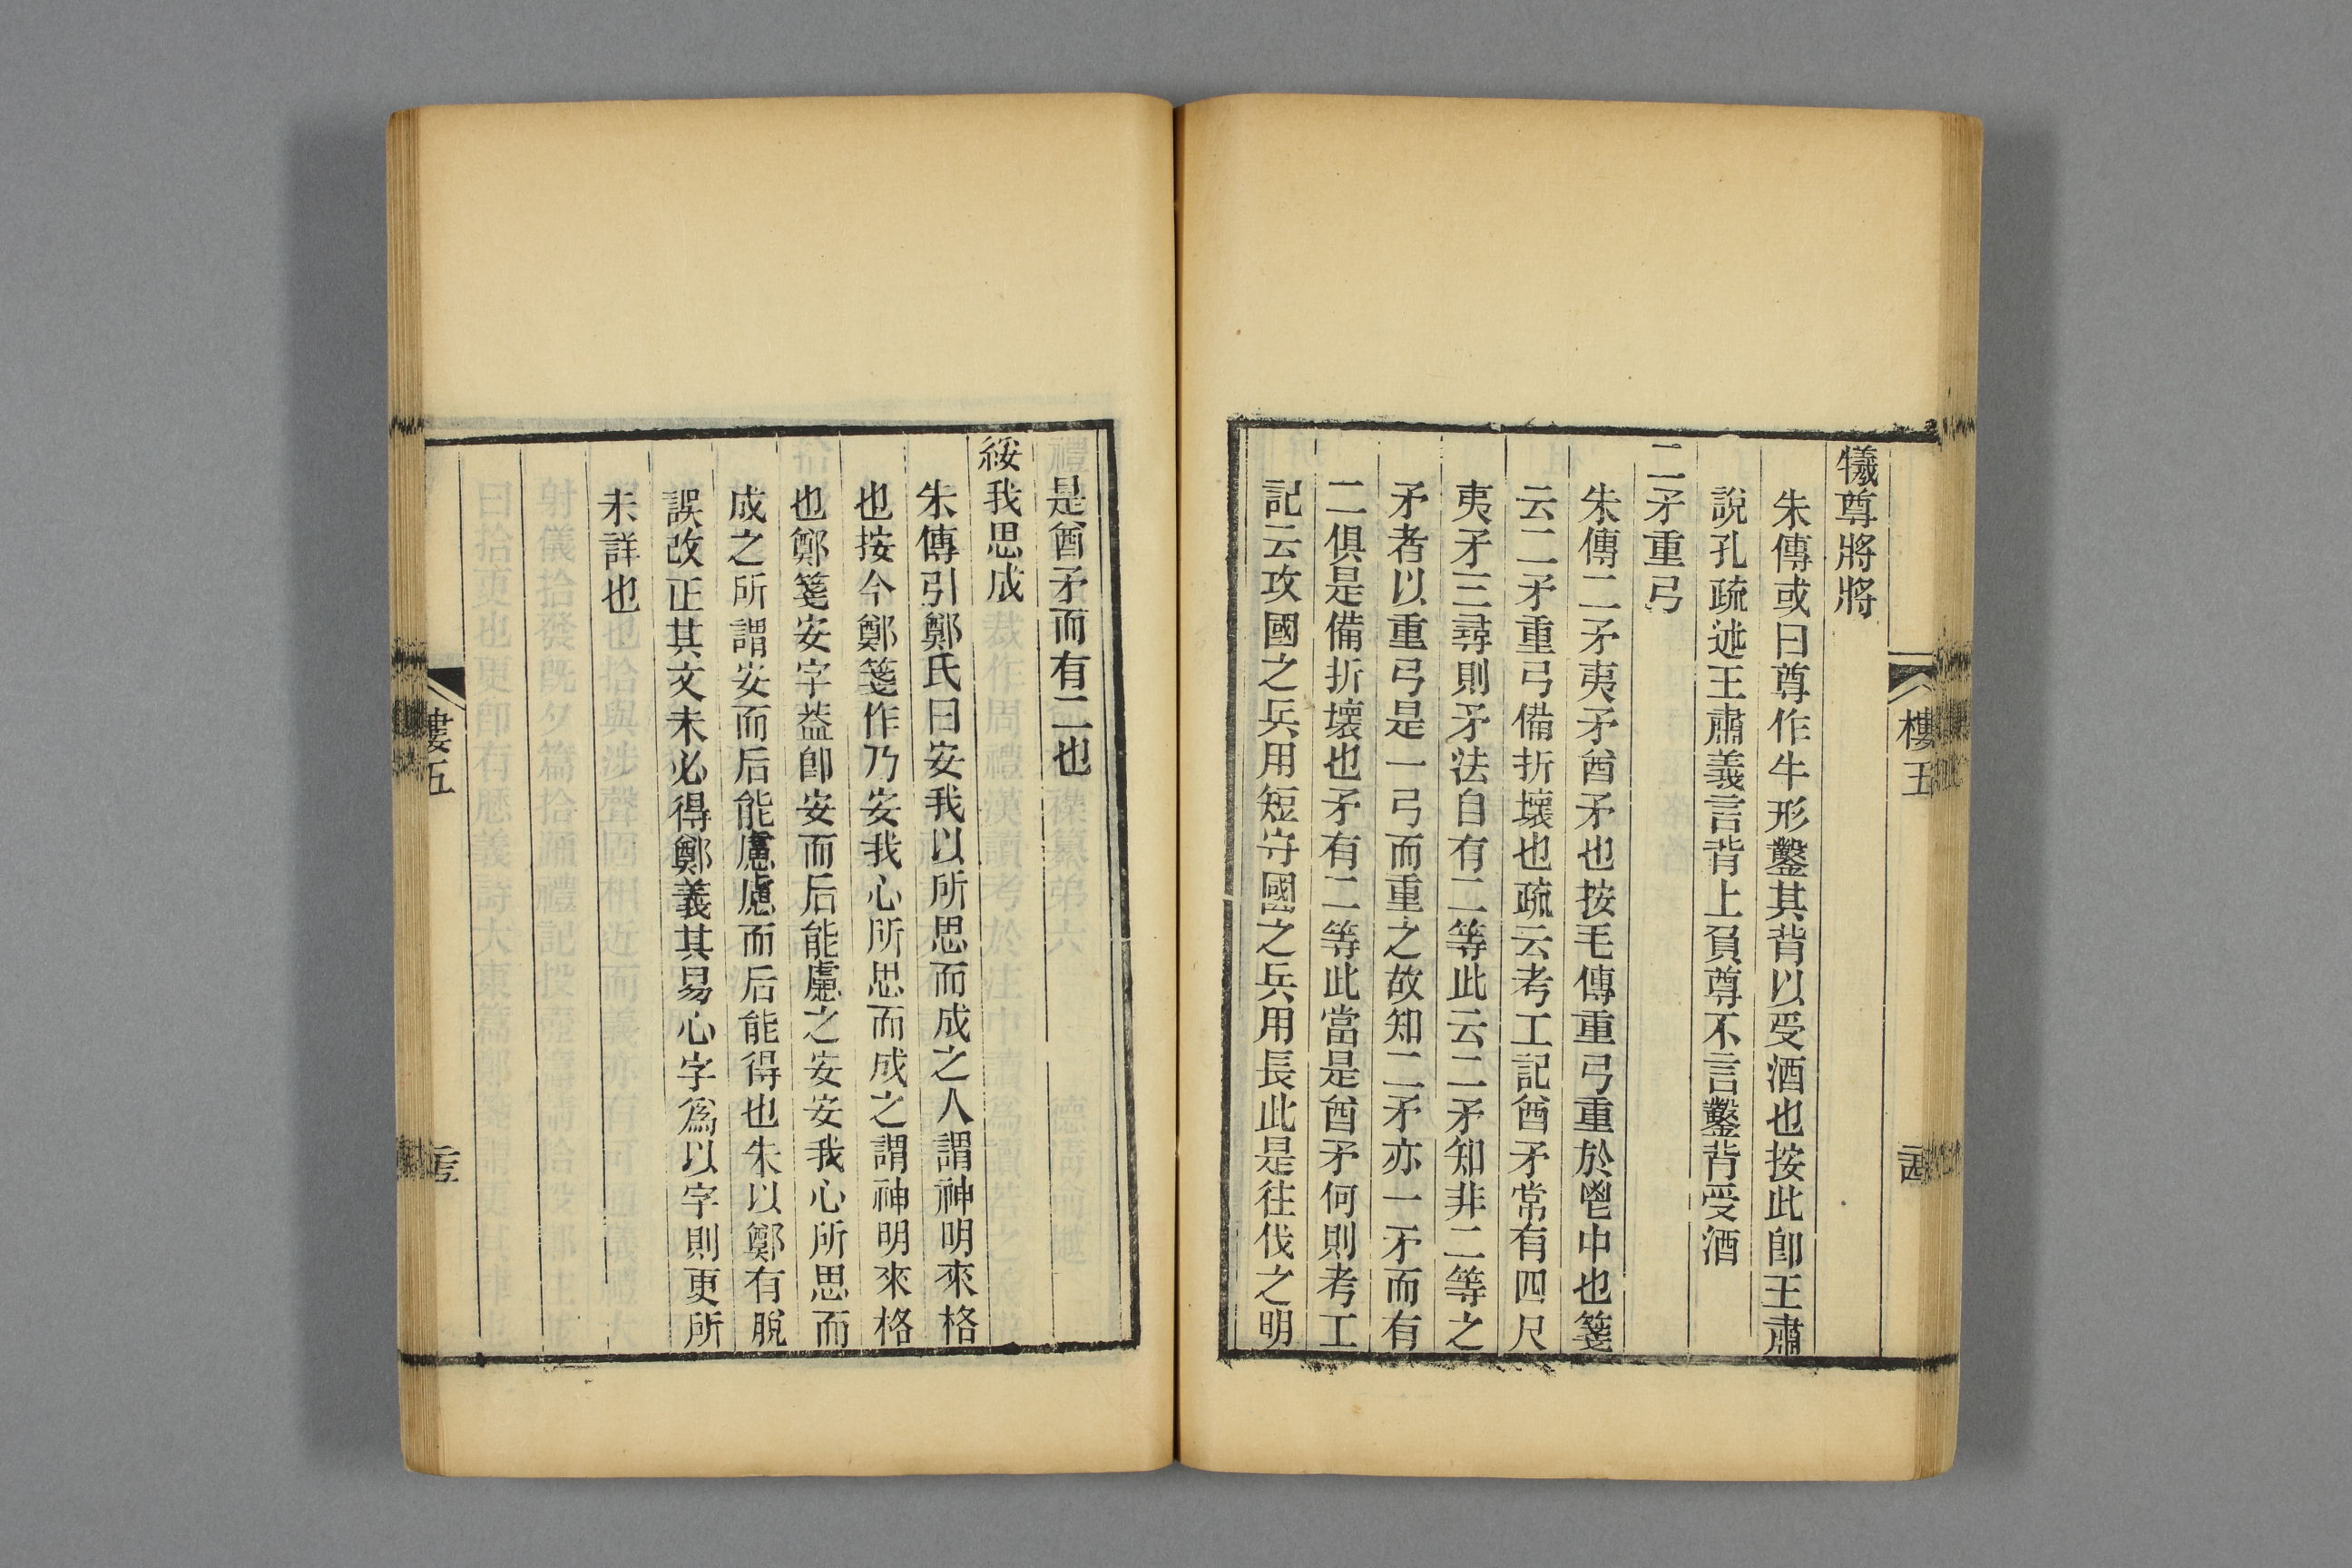 犧尊將將
朱傳或曰尊作牛形鑿其背以受酒也按此卽王肅
說孔疏述王肅義言背上負尊不言鑿背受酒
二矛重弓
朱傳二矛夷矛酋矛也按毛傳重弓重於鬯中也箋
云二矛重弓備折壞也疏云考工記酋矛常有四尺
夷矛三尋則矛法自有二等此云二矛知非二等之
矛者以重弓是一弓而重之故知二矛亦一矛而有
二俱是備折壞也矛有二等此當是酋矛何則考工
記云攻國之兵用短守國之兵用長此是往伐之明
樓五
是酋矛而有二也
綏我思成
朱傳引鄭氏曰安我以所思而成之人謂神明來格
也按今鄭箋作乃安我心所思而成之謂神明來格
也鄭箋安字葢卽安而后能慮之安安我心所思而
成之所謂安而后能慮慮而后能得也朱以鄭有脫
誤改正其文未必得鄭義其易心字爲以字則更所
未詳也
樓五